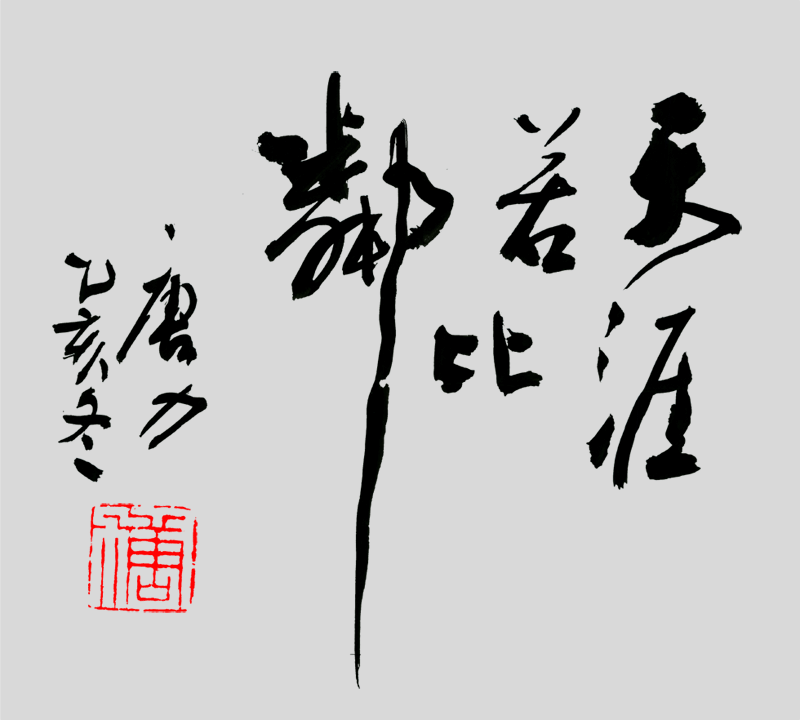 天涯
若比
鄰
唐力
乙亥冬